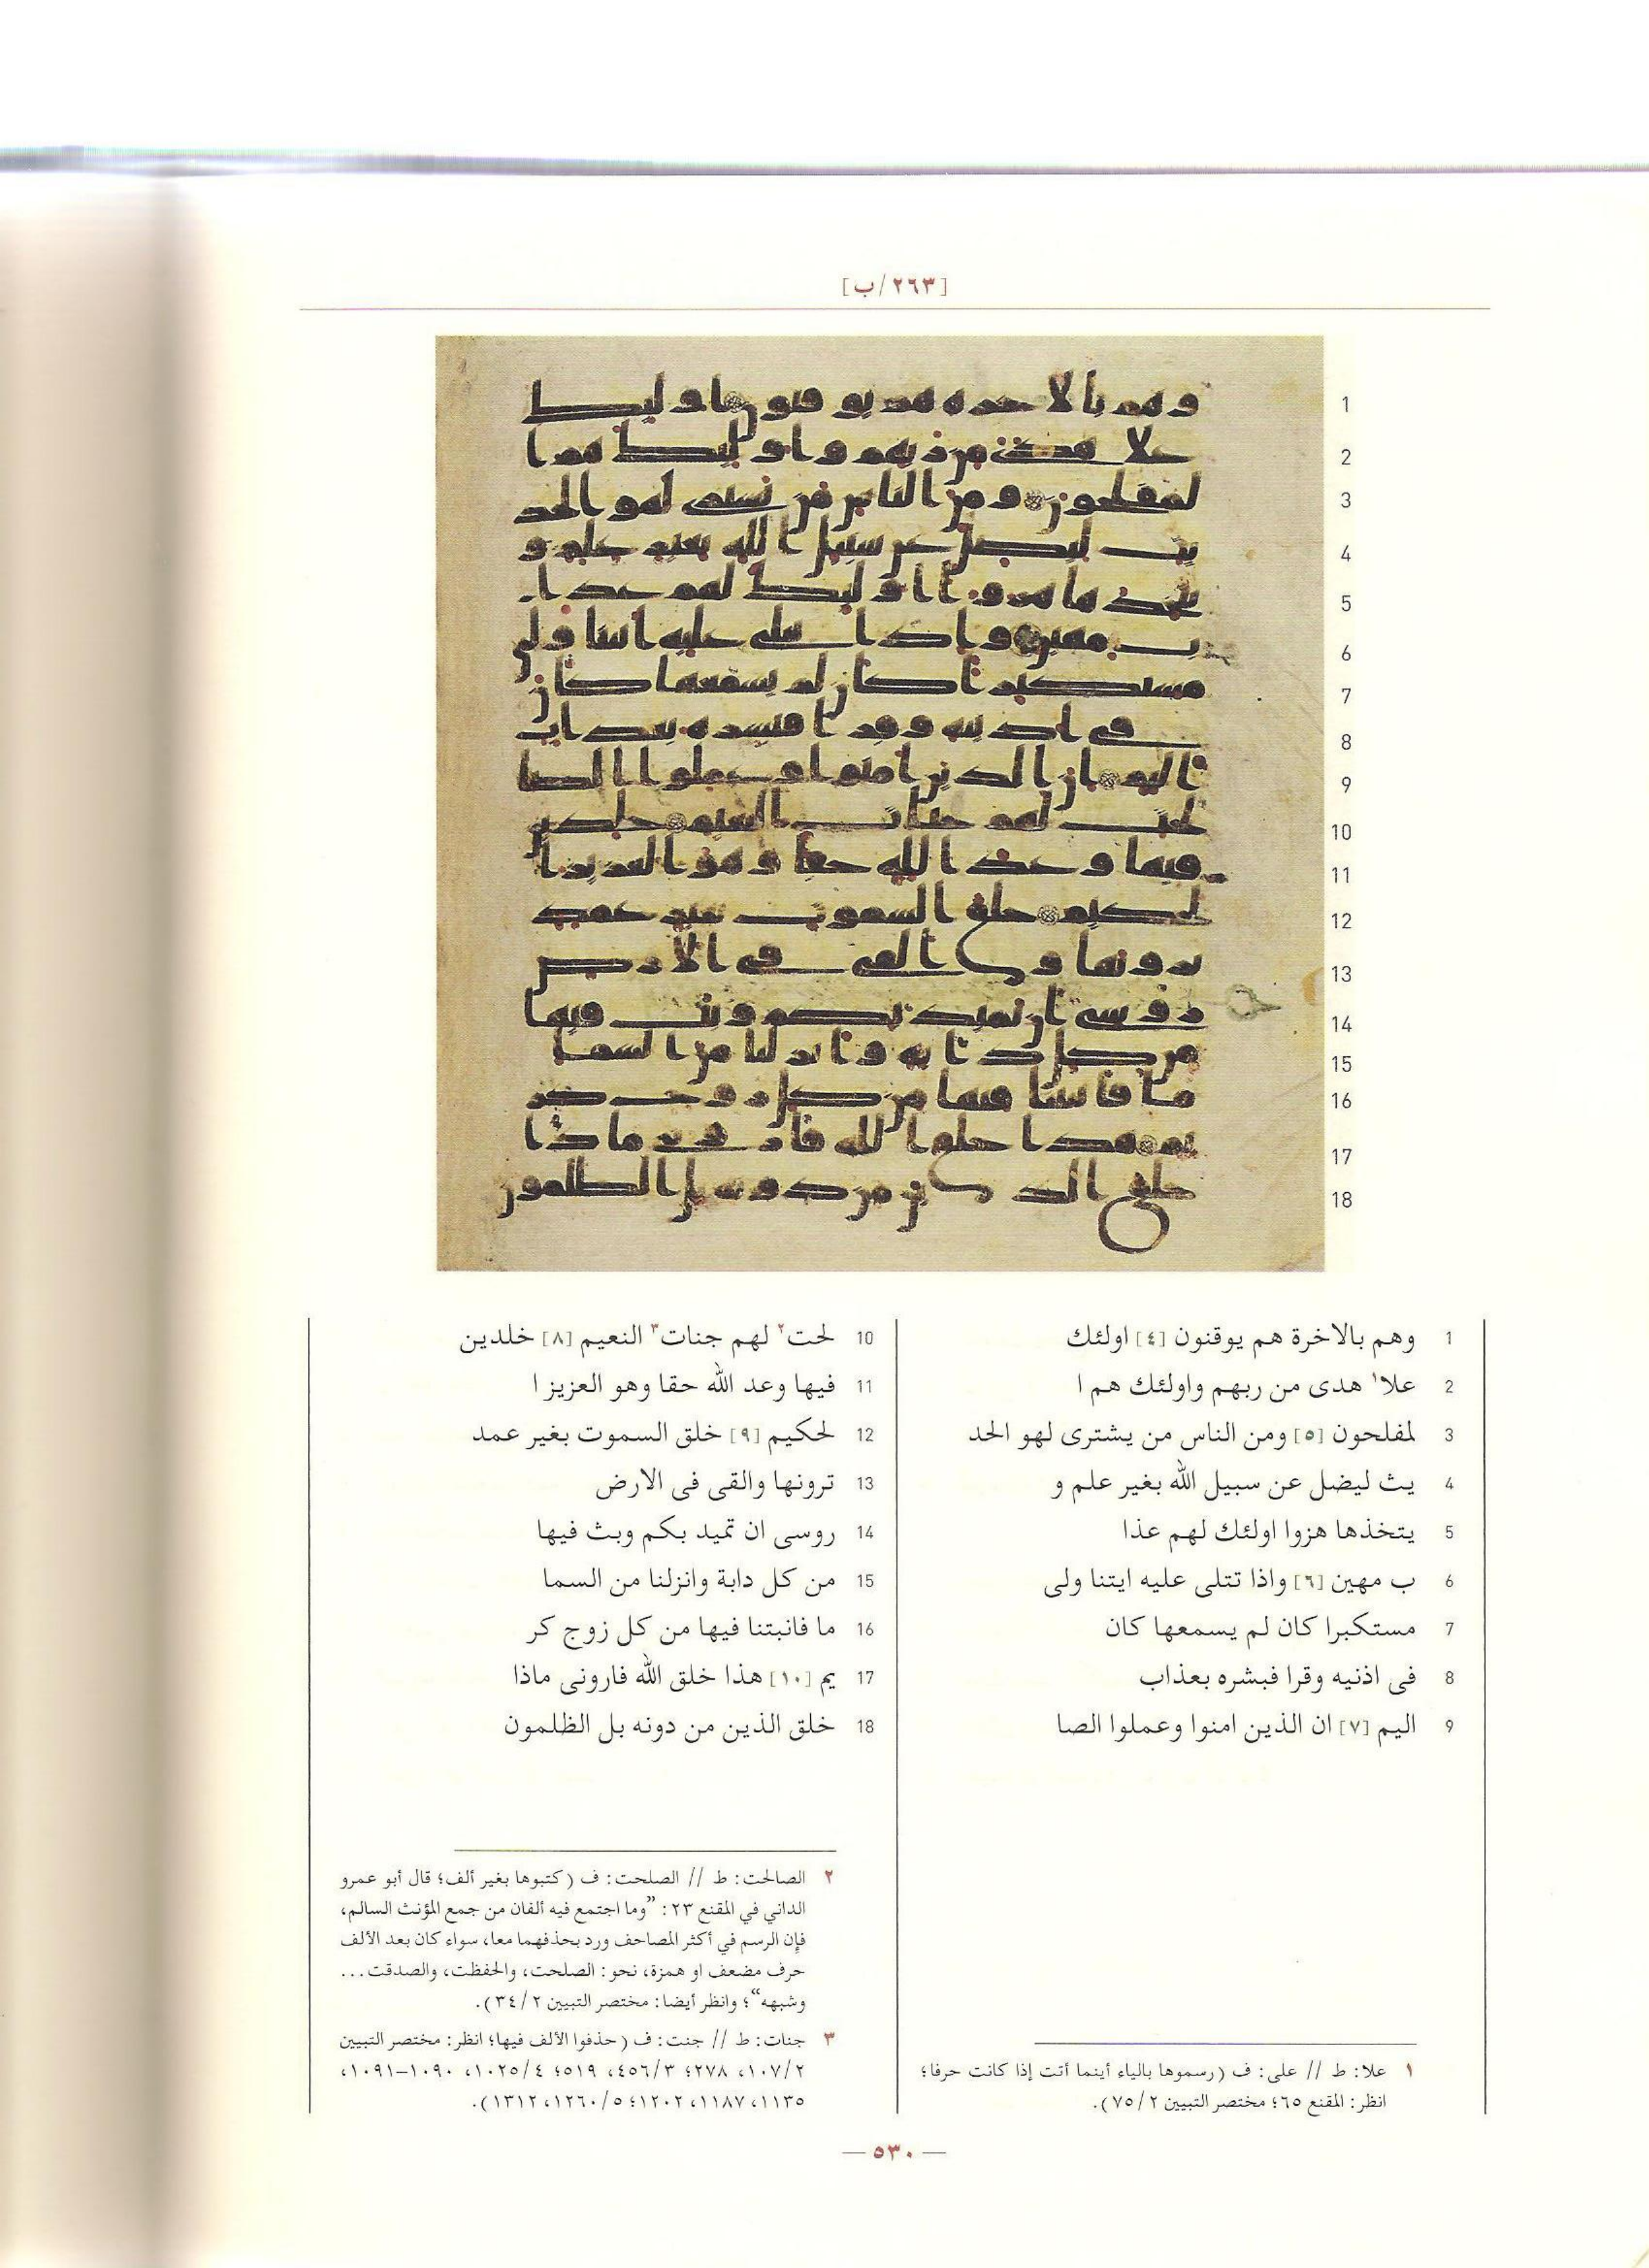 [٢٦٣/ب]
1 وهم بالاخرة هم يوقنون [٤] اولئك
2 علا١ هدى من ربهم واولئك هم ا
3 لمفلحون [٥] ومن الناس من يشترى لهو الحد
4 يث ليضل عن سبيل الله بغير علم و
5 يتخذها هزوا اولئك لهم عذا
6 ب مهين [٦] واذا تتلى عليه ايتنا ولى
7 مستكبرا كان لم يسمعها كان
8 فى اذنيه وقرا فبشره بعذاب
9 اليم [٧] ان الذين امنوا وعملوا الصا
١ علا: ط // على: ف (رسموها بالياء أينما أتت إذا كانت حرفا؛
انظر: المقنع ٦٥؛ مختصر التبيين ٧٥/٢).
10 لحت٢ لهم جنات٣ النعيم [٨] خلدين
11 فيها وعد الله حقا وهو العزيز ا
12 لحكيم [٩] خلق السموت بغير عمد
13 ترونها والقى فى الارض
14 روسى ان تميد بكم وبث فيها
15 من كل دابة وانزلنا من السما
16 ما فانبتنا فيها من كل زوج كر
17 يم [١٠] هذا خلق الله فارونى ماذا
18 خلق الذين من دونه بل الظلمون
٢ الصالحت: ط // الصلحت: ف (كتبوها بغير ألف؛ قال أبو عمرو
الداني في المقنع ٢٣: ”وما اجتمع فيه ألفان من جمع المؤنث السالم،
فإن الرسم في أكثر المصاحف ورد بحذفهما معا، سواء كان بعد الألف
حرف مضعف او همزة، نحو: الصلحت، والحفظت، والصدقت...
وشبهه“؛ وانظر أيضا: مختصر التبيين ٣٤/٢).
٣ جنات: ط // جنت: ف (حذفوا الألف فيها؛ انظر: مختصر التبيين
١٠٧/٢، ٢٧٨؛ ٤٥٦/٣، ٥١٩؛ ١٠٢٥/٤، ١٠٩٠–١٠٩١،
١١٣٥، ١١٨٧، ١٢٠٢؛ ١٢٦٠/٥، ١٣١٢).
— ٥٣٠ —